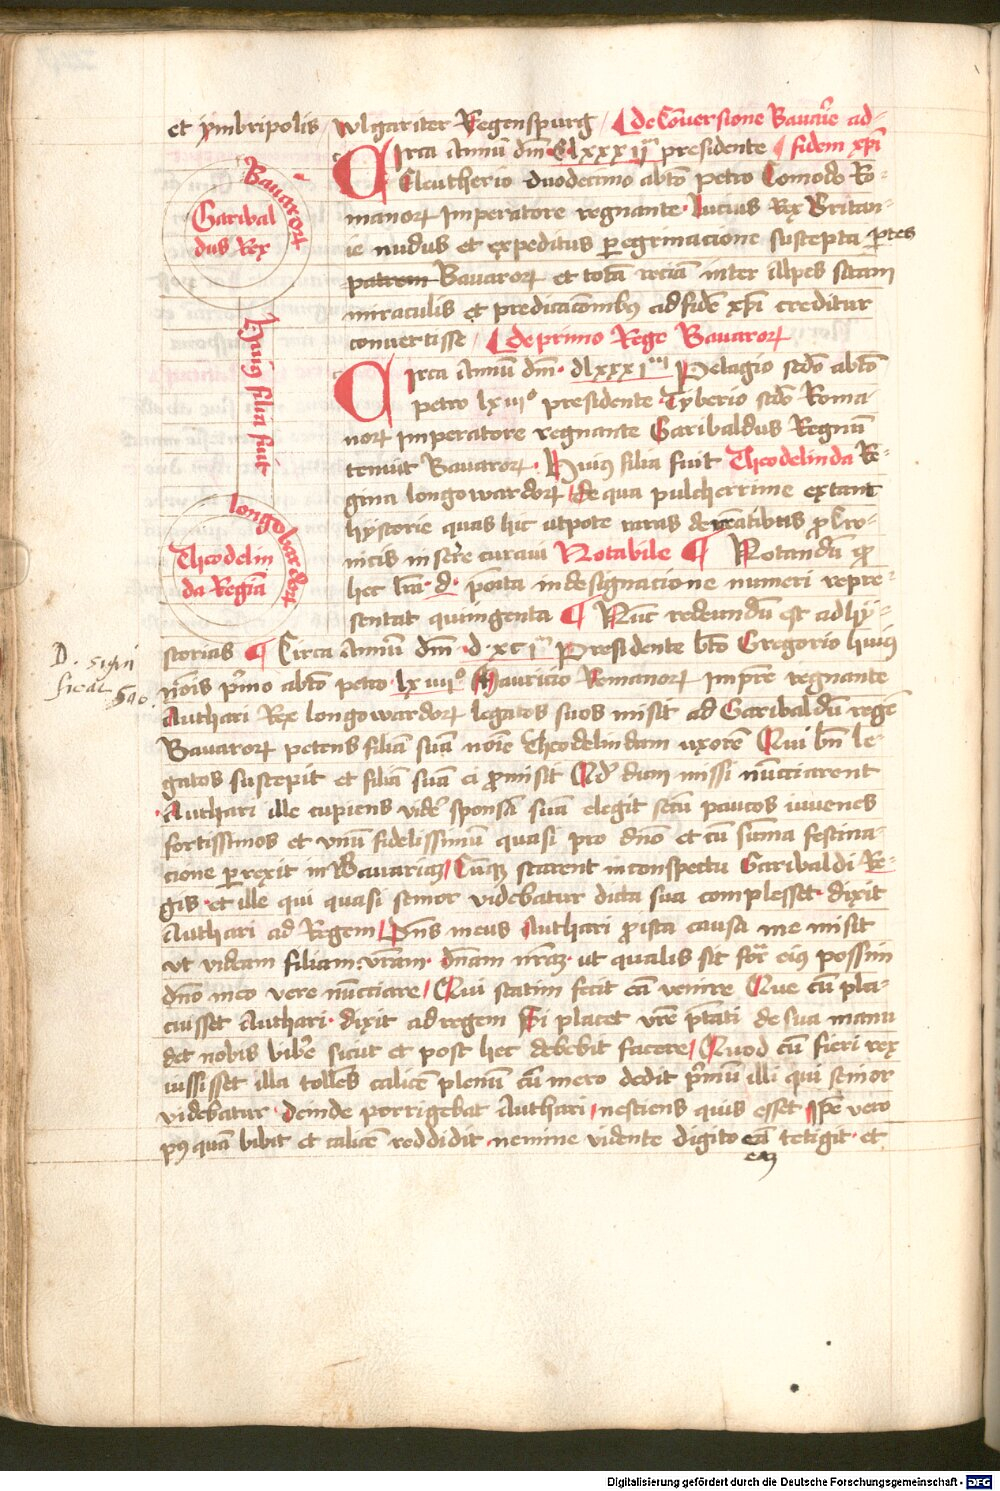 et ymbripolis / wlgariter Regenspurg / de Co͂uersione Bauar͛e ad
fidem xp̃i
Circa Annu͂ dm͂ · Clxxxij presidente
Eleutherio duodecimo ab to petro Comodo Ro-
manoꝝ Imperatore regnante · Lucius Rex Britan-
ie nudus et expeditus peregrinacione suscepta p͛tes
patrem Bauaroꝝ et tota͂ recia͂ inter Alpes sitam
miraculis et predicacionibꝰ ad fide͂ xp̃i creditur
conuertisse / de primo Rege Bauaroꝝ
Circa Annu͂ dm͂ · dlxxxi Pelagio sc͂do ab to
petro lxiii° presidente Tyberio sc͂do Roma-
noꝝ Imperatore regnante Garibaldus Regnu͂
tenuit Bauaroꝝ · Huiꝰ filia fuit Theodelinda Re-
gina longowardoꝝ / de qua pulcherrime extant
hystorie quas hic utpote raras de pro Cro-
nicis inser͛e curaui Notabile ¶ Notandu͂ pro
hec l͂ra · d · po͂ita in designacione numeri repre-
sentat quingenta ¶ Nu͂c redeundu͂ est ad hy-
storias ¶ Circa Annu͂ dm͂ · d · xc i Presidente b͂to Gregorio huiꝰ
no͂is p͛mo ab to petro · lxiiii° Mauricio Romanoꝝ Imp͂re regnante
Authari Rex longowardoꝝ legatos suos misit ad Garibaldu͂ rege͂
Bauaroꝝ petens filia͂ sua͂ no͂ie Theodelindam uxore͂ Qui b͂n le-
gatos suscepit et filia͂ sua͂ ei promisit Qd͛ dum missi nu͂cciarent
Authari ille cupiens vide͛ sponsa͂ sua͂ elegit secu͂ paucos iuuenes
fortissimos et vnu͂ fidelissimu͂ quasi pro d͂no et cu͂ su͂ma festina-
cione perrexit in Bauariaꝫ / Cu͂qꝫ starent in conspectu Garibaldi Re-
gis · et ille qui quasi senior videbatur dicta sua complesset · dixit
Authari ad Regem / D͂ns meus Authari pro ista causa me misit
ut videam filiam v͂ram · d͂nam n͂raꝫ · ut qualis sit for͂a eiꝰ possim
d͂no meo vere nu͂cciare / Qui statim fecit ea͂ venire Que cu͂ pla-
cuisset Authari · dixit ad regem Si placet v͂re p͂tati de sua manu
det nobis bibe͛ sicut et post hec debebit facere / Quod cu͂ fieri rex
iussisset illa tolle͂s calice͂ plenu͂ cu͂ mero dedit p͛mu͂ illi qui senior
videbatur deinde porrigebat Authari / nesciens quis esset ip͂e vero
pꝰ qua͂ bibit et calice͂ reddidit · nemine vidente digito ea͂ tetigit · et
eaꝫ
Bauaroꝝ
Garibal
dus Rex
Huiꝰ filia fuit
longobardoꝝ
Theodelin
da Regi͂a
D. signi
ficat 500.
Digitalisierung gefördert durch die Deutsche Forschungsgemeinschaft - DFG